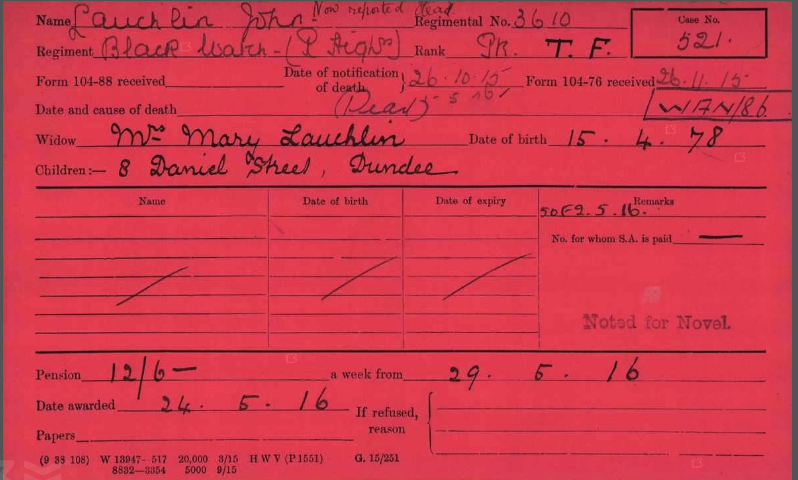 Name Lauchlin John - Now reported dead. Regimental No. 3610 Case No.
Regiment Black Watch - (R Highrs) Rank Pte. T. F. 521.
Form 104-88 received Date of notification of death, 26.10.15 Form 104-76 received 26.11.15
Date and cause of death (Dead) 5 16 W.A.N/86.
Widow Mrs Mary Lauchlin Date of birth 15. 4. 78
Children:— 8 Daniel Street, Dundee
Name Date of birth Date of expiry Remarks
2.5.16.
No. for whom S.A. is paid —
Noted for Novel.
Pension 12/6 — a week from 29. 5. 16
Date awarded 24. 5. 16 If refused, reason
Papers
(9 38 108) W 13947—517 20,000 3/15 H W V (P 1551) G. 15/251
8832—3354 5000 9/15